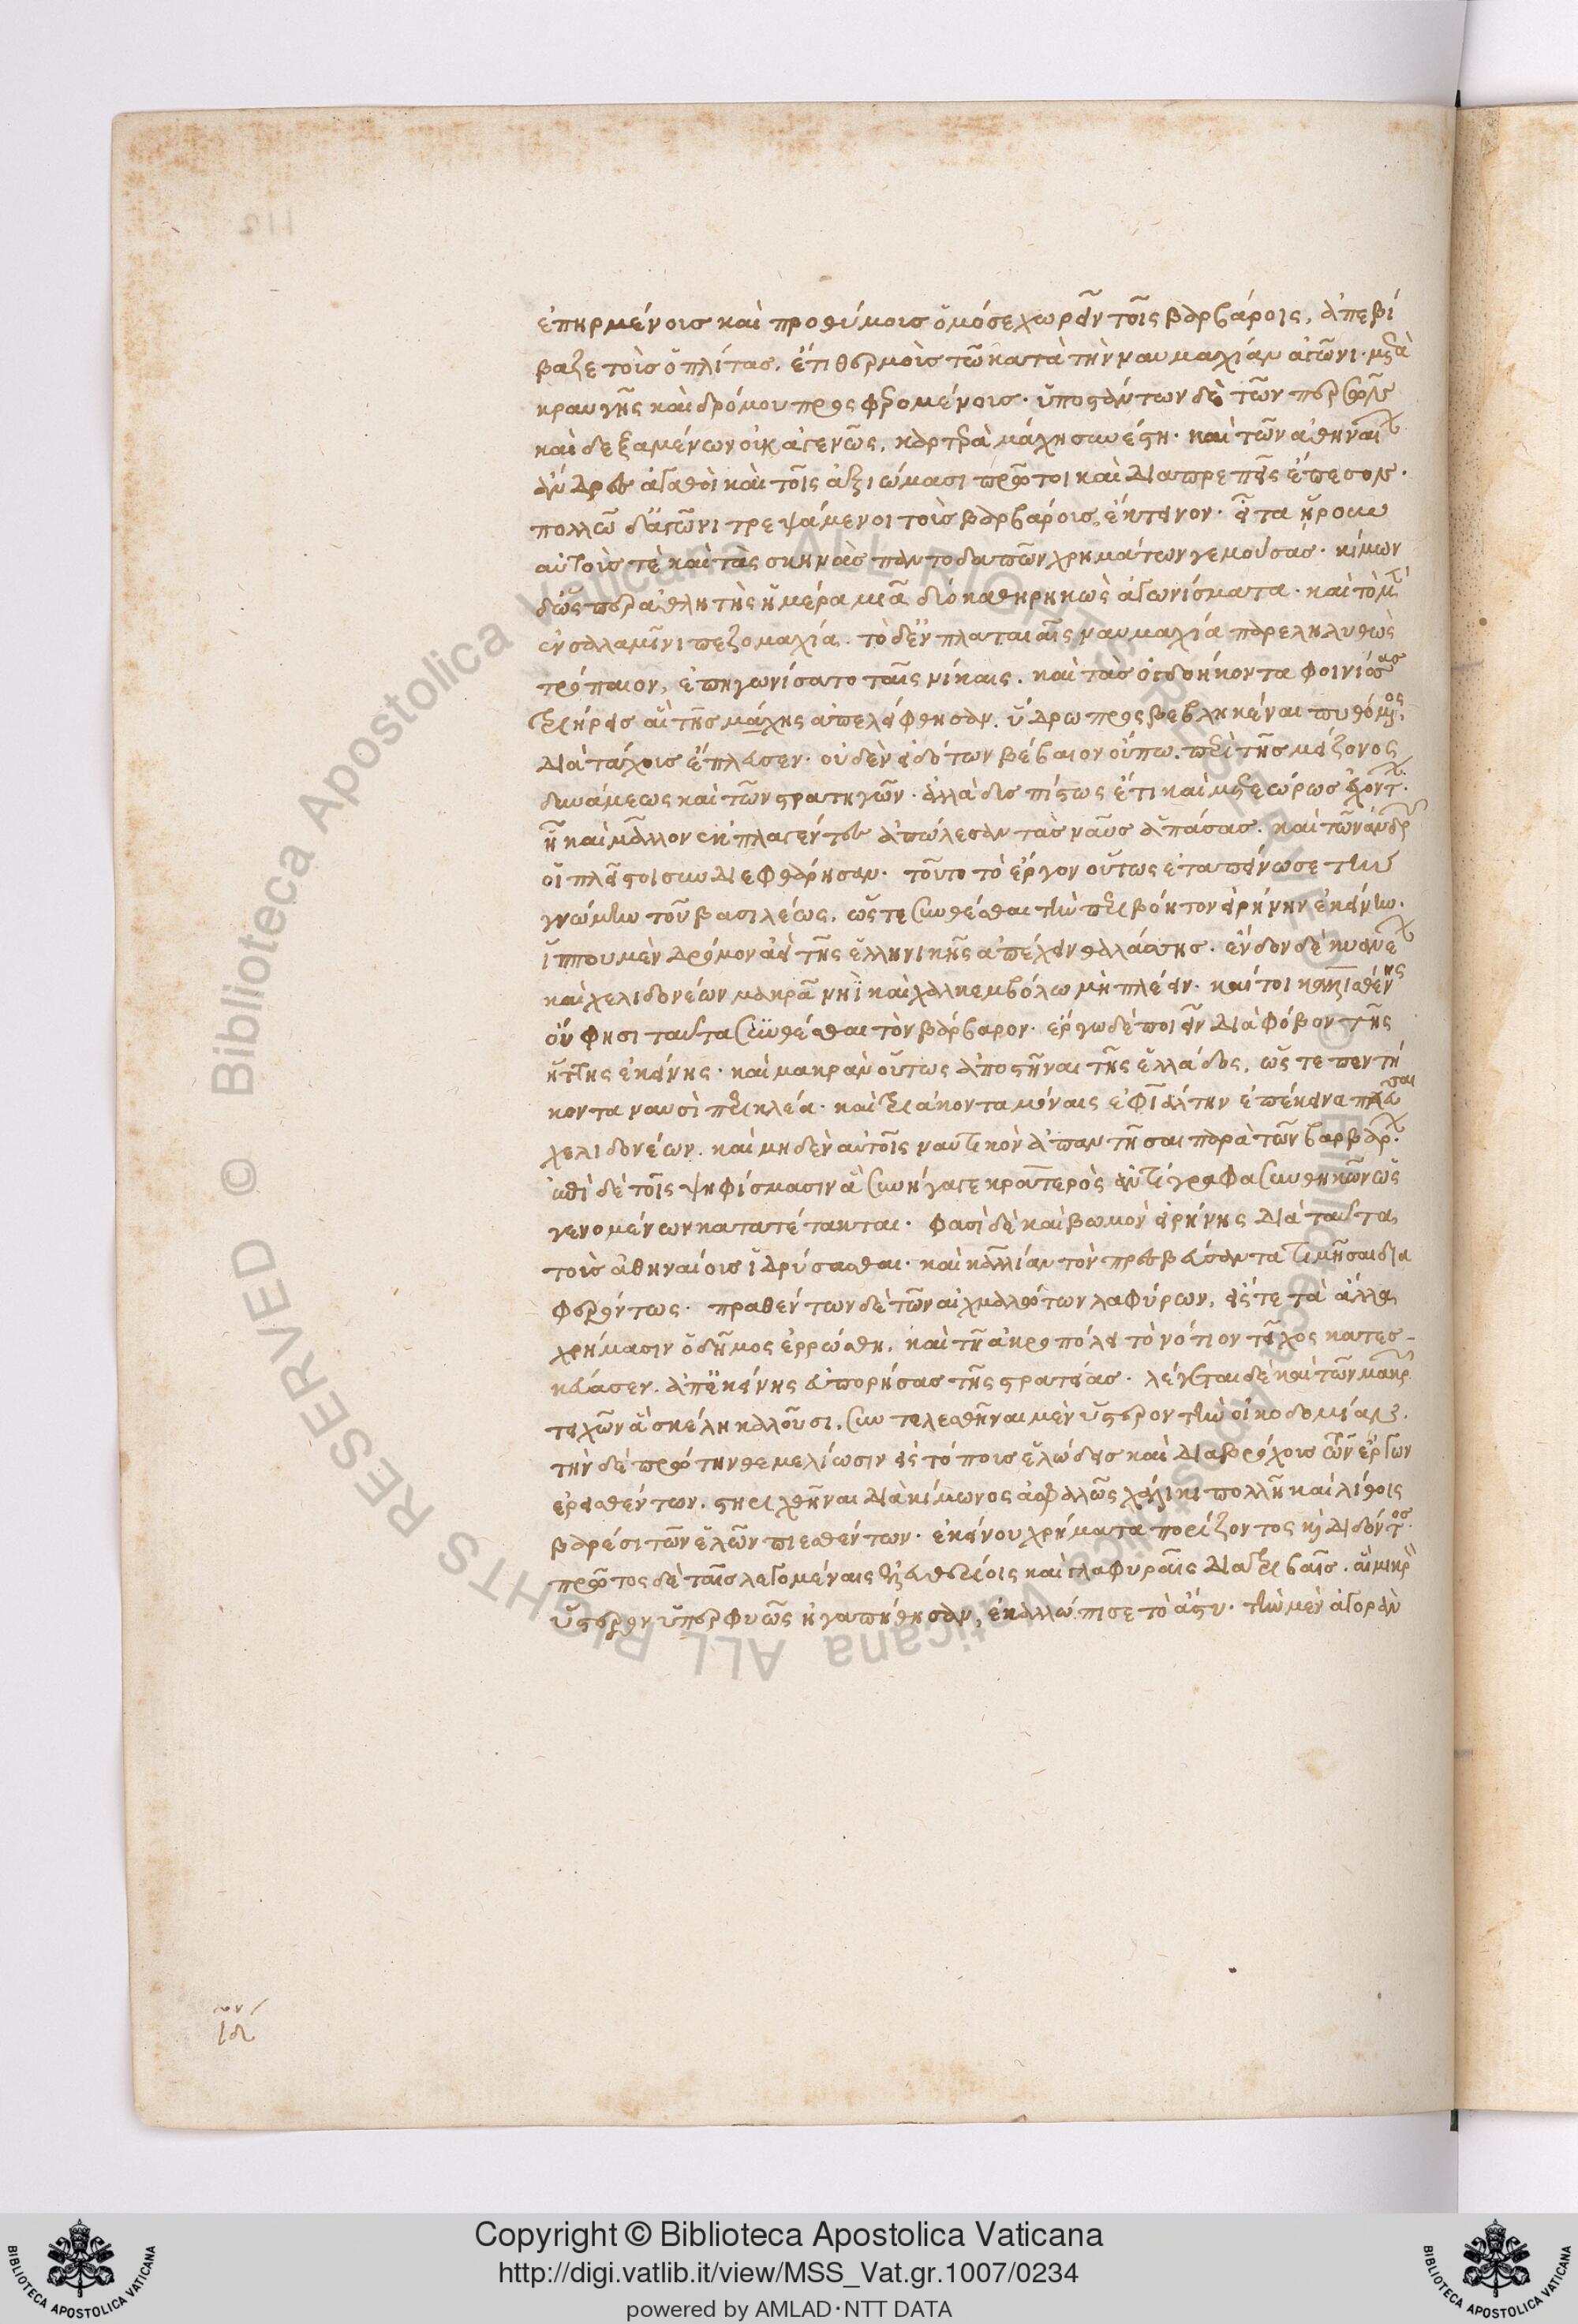 ἐπηρμένους καὶ προθύμους ὁμόσε χωρεῖν τοῖς βαρβάροις, ἀπεβί
βαζε τοὺς ὁπλίτας. ἔτι θερμοὺς τῶ κατὰ τὴν ναυμαχίαν ἀγῶνι. μετὰ
κραυγῆς καὶ δρόμου προσφερομένους. ὑποστάντων δὲ τῶν περσῶν
καὶ δεξαμένων οὐκ ἀγενῶς, καρτερὰ μάχη συνέστη. καὶ τῶν ἀθηναίων
ἄνδρες ἀγαθοὶ καὶ τοῖς ἀξιώμασι πρῶτοι καὶ διαπρεπεῖς ἔπεσον.
πολλῶ δ' ἀγῶνι τρεψάμενοι τοὺς βαρβάρους, ἔκτεινον. εἶτα ἥρουν
αὐτούς τε καὶ τὰς σκηνὰς παντοδαπῶν χρημάτων γεμούσας. κίμων
δ' ὥσπερ ἀθλητὴς ἡμέρα μιᾶ δύο καθηρηκὼς ἀγωνίσματα. καὶ τὸ μὲν
ἐν σαλαμῖνι πεζομαχία. τὸ δ' ἐν πλαταιαῖς ναυμαχία παρεληλυθὼς
τρόπαιον, ἐπηγωνίσατο ταῖς νίκαις. καὶ τὰς ὀγδοήκοντα φοινίσσας
τριήρεις αἳ τῆς μάχης ἀπελείφθησαν. ὕδρω προσβεβληκέναι πυθόμενος,
διὰ τάχους ἔπλευσεν. οὐδὲν εἰδότων βέβαιον οὔπω. περὶ τῆς μείζονος
δυνάμεως καὶ τῶν στρατηγῶν. ἀλλὰ δυσπίστως ἔτι καὶ μετεώρως ἐχόντων.
ἧ καὶ μᾶλλον ἐκπλαγέντες ἀπώλεσαν τὰς ναῦς ἁπάσας. καὶ τῶν ἀνδρῶν
οἱ πλεῖστοι συνδιεφθάρησαν. τοῦτο τὸ ἔργον οὕτως ἐταπείνωσε τὴν
γνώμην τοῦ βασιλέως, ὥστε συνθέσθαι τὴν περιβόητον εἰρήνην ἐκείνην.
ἵππου μὲν δρόμον ἀεὶ τῆς ἑλληνικῆς ἀπέχειν θαλάσσης. ἔνδον δὲ κυανέων
καὶ χελιδονέων μακρᾶ νηῒ καὶ χαλκεμβόλω μὴ πλέειν. καίτοι καλλισθένης
οὔ φησι ταῦτα συνθέσθαι τὸν βάρβαρον. ἔργω δὲ ποιεῖν διὰ φόβον τῆς
ἥττης ἐκείνης. καὶ μακρὰν οὕτως ἀποστῆναι τῆς ἑλλάδος, ὥστε πεντή
κοντα ναυσὶ περικλέα. καὶ τριάκοντα μόναις ἐφιάλτην ἐπέκεινα πλεῦσαι
χελιδονέων. καὶ μηδὲν αὐτοῖς ναυτικὸν ἀπαντῆσαι παρὰ τῶν βαρβάρων.
ἐν δὲ τοῖς ψηφίσμασιν ἃ συνήγαγε κρατερὸς ἀντίγραφα συνθηκῶν ὡς
γενομένων κατατέτακται. φασὶ δὲ καὶ βωμὸν εἰρήνης διὰ ταῦτα
τοὺς ἀθηναίους ἱδρύσασθαι. καὶ καλλίαν τὸν πρεσβεύσαντα τιμῆσαι δια
φερόντως. πραθέντων δὲ τῶν αἰχμαλώτων λαφύρων, εἴς τε τὰ ἄλλα
χρήμασιν ὁ δῆμος ἐρρώσθη, καὶ τῆ ἀκροπόλει τὸ νότιον τεῖχος κατεσ-
κεύασεν. ἀπ' ἐκείνης εὐπορήσας τῆς στρατείας. λέγεται δὲ καὶ τῶν μακρῶν
τειχῶν ἃ σκέλη καλοῦσι, συντελεσθῆναι μὲν ὕστερον τὴν οἰκοδομίαν.
τὴν δὲ πρώτην θεμελίωσιν εἰς τόπους ἑλώδεις καὶ διαβρόχους τῶν ἔργων
ἐρεισθέντων, στηριχθῆναι διὰ κίμωνος ἀσφαλῶς χάλικι πολλῆ καὶ λίθοις
βαρέσι τῶν ἑλῶν πιεσθέντων. ἐκείνου χρήματα πορίζοντος καὶ διδόντος.
πρῶτος δὲ ταῖς λεγομέναις ἐλευθερίοις καὶ γλαφυραῖς διατριβαῖς. αἳ μικρὸν
ὕστερον ὑπερφυῶς ἠγαπήθησαν, ἐκαλλώπισε τὸ ἄστυ. τὴν μὲν ἀγορὰν
Copyright © Biblioteca Apostolica Vaticana
http://digi.vatlib.it/view/MSS_Vat.gr.1007/0234
powered by AMLAD·NTT DATA